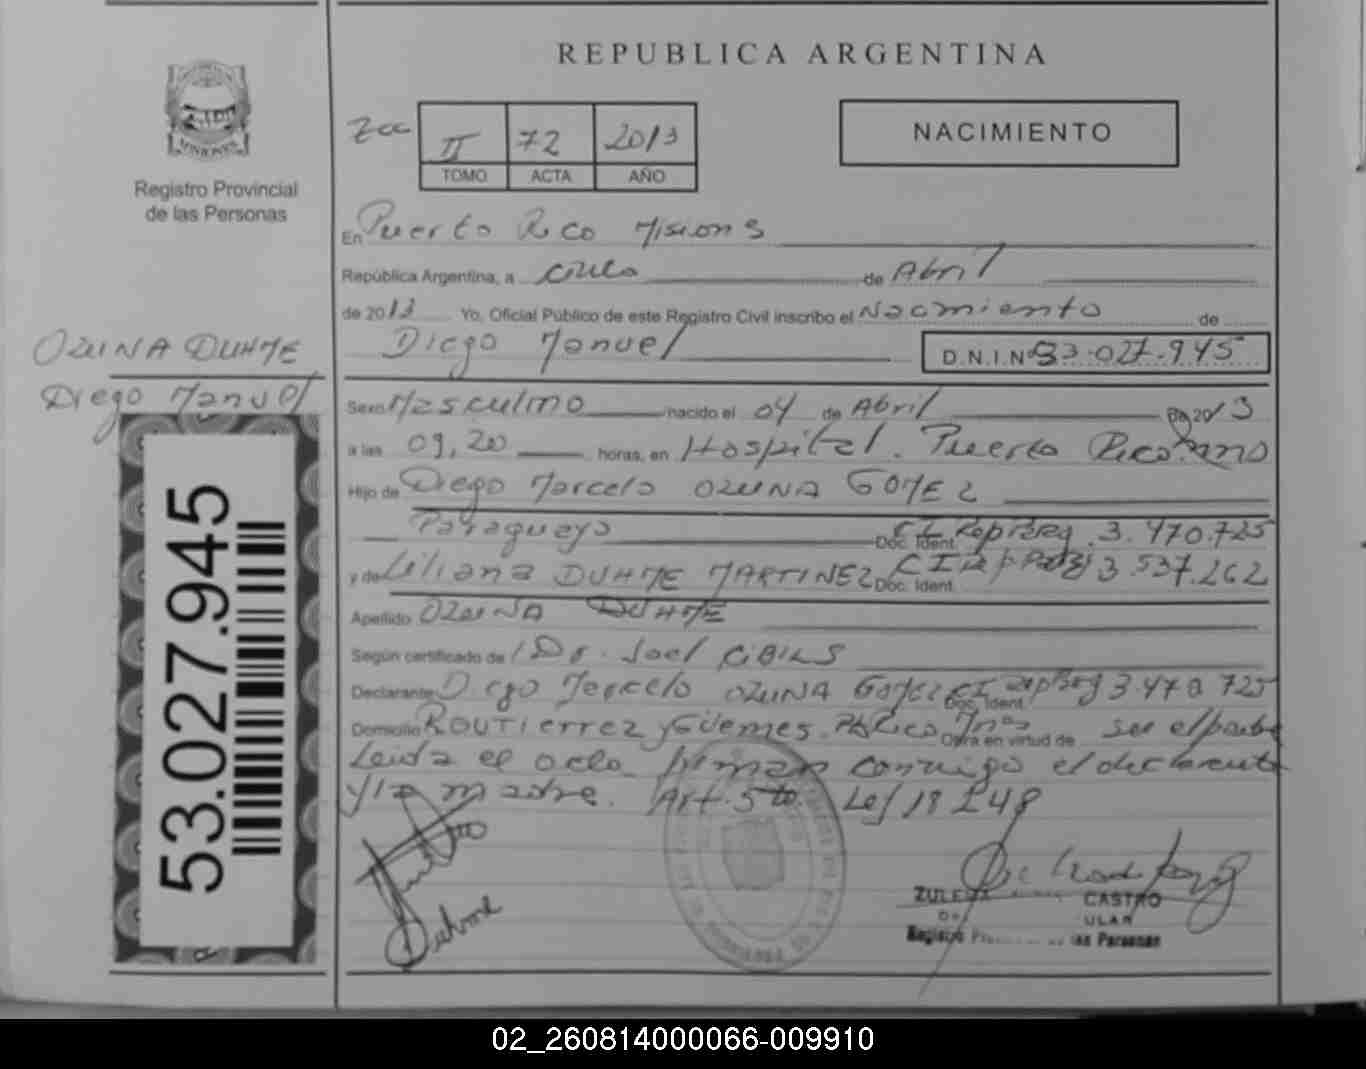 REPUBLICA ARGENTINA
NACIMIENTO
Registro Provincial
de las Personas
II 72 2013
TOMO ACTA AÑO
En Puerto Rico Misiones
República Argentina, a cinco de Abril
de 2013 Yo, Oficial Público de este Registro Civil inscribo el Nacimiento de
Diego Manuel D.N.I.Nº 53.027.945
OZUNA DUHME
Diego Manuel
Sexo Masculino nacido el 04 de Abril de 2013
a las 09,20 horas, en Hospital. Puerto Rico.
Hijo de Diego Marcelo OZUNA GOMEZ
Paraguayo Doc. Ident. CI 3.470.725
y de Liliana DUHME MARTINEZ Doc. Ident. CI 3.537.262
Apellido OZUNA DUHME
Según certificado de Dr. Joel CIBILS
Declarante Diego Marcelo OZUNA GOMEZ CI Doc. Ident. 3.470.725
Domicilio y Güemes. Obra en virtud de ser el padre
Leida el acta firman conmigo el declarante
y la madre. Art. 5to Ley 18248
53.027.945
Duhme
CASTRO
Registro las Personas
02_260814000066-009910